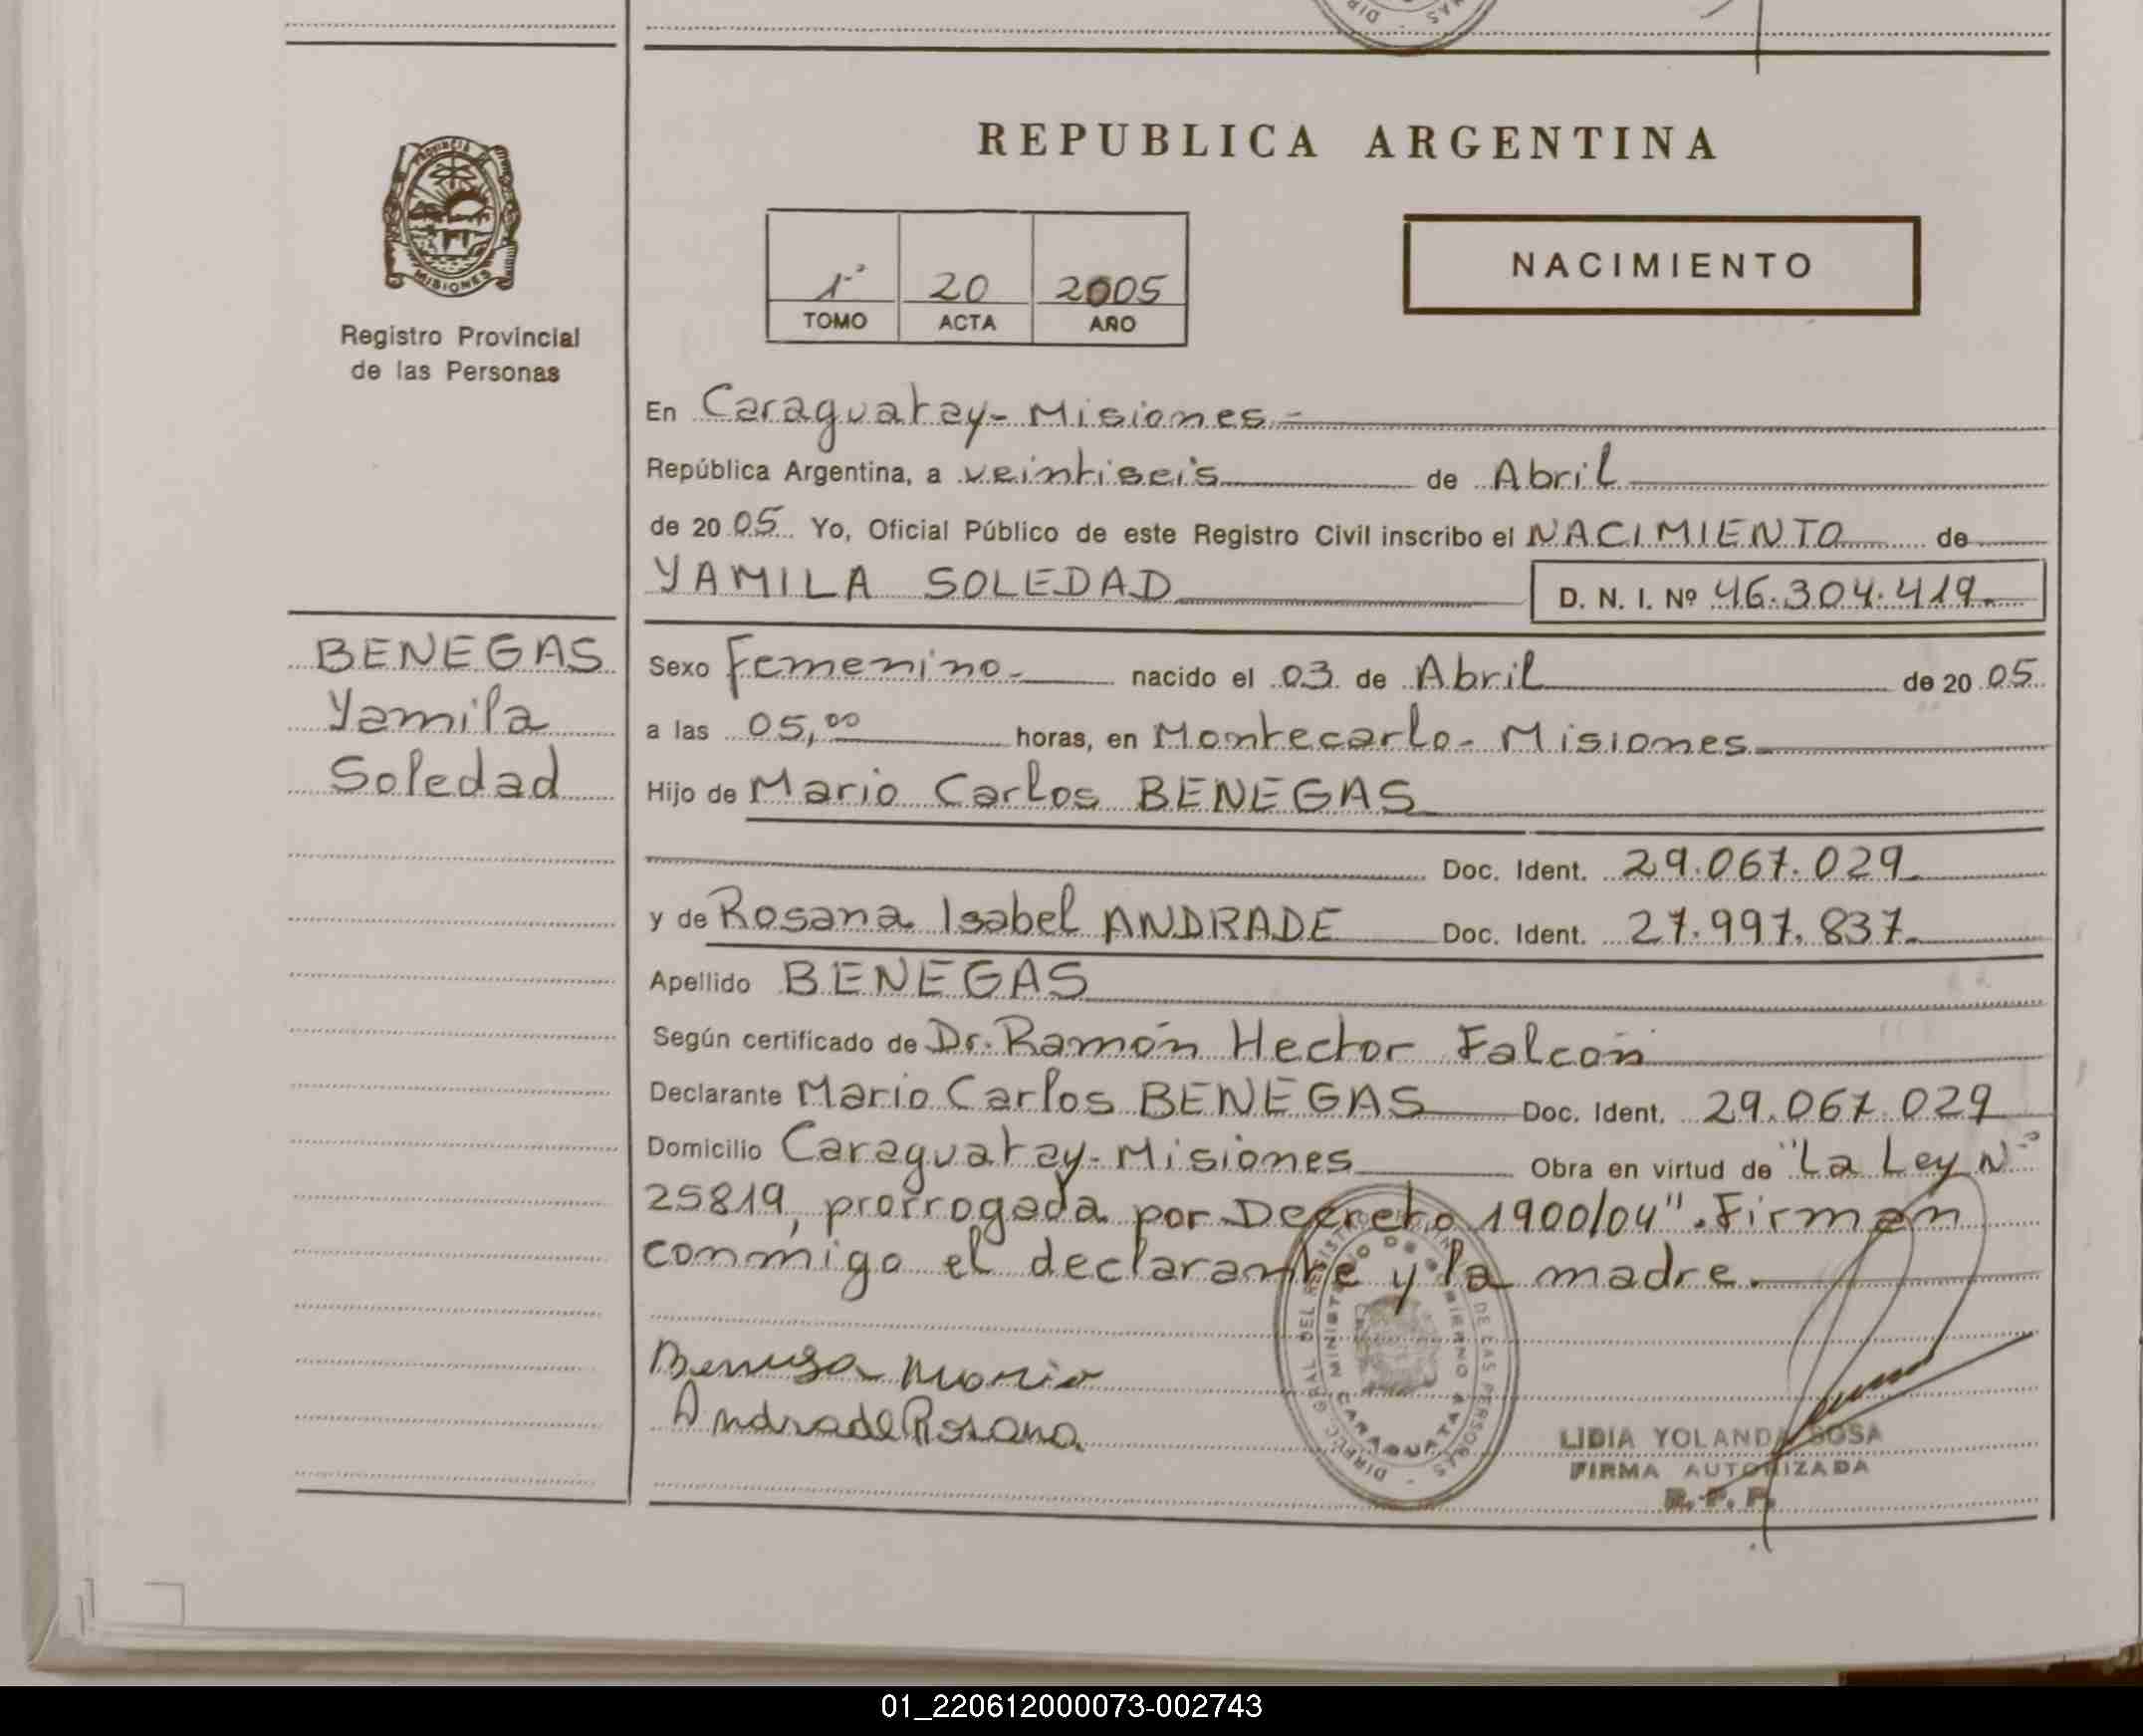 REPUBLICA ARGENTINA
PROVINCIA
MISIONES
Registro Provincial
de las Personas
1º 20 2005
TOMO ACTA AÑO
NACIMIENTO
En Caraguatay - Misiones -
República Argentina, a veintiseis de Abril
de 2005 Yo, Oficial Público de este Registro Civil inscribo el NACIMIENTO de
YAMILA SOLEDAD D. N. I. Nº 46.304.419.-
BENEGAS
Yamila
Soledad
Sexo Femenino.- nacido el 03 de Abril de 2005
a las 05,00 horas, en Montecarlo - Misiones
Hijo de Mario Carlos BENEGAS
Doc. Ident. 29.067.029.
y de Rosana Isabel ANDRADE Doc. Ident. 27.997.837.
Apellido BENEGAS
Según certificado de Dr. Ramón Hector Falcón
Declarante Mario Carlos BENEGAS Doc. Ident. 29.067.029
Domicilio Caraguatay - Misiones Obra en virtud de "La Ley Nº
25819, prorrogada por Decreto 1900/04". Firman
conmigo el declarante y la madre.
Mario
Andrade Rosana
DE LAS PERSONAS
CARAGUATAY
LIDIA YOLANDA SOSA
FIRMA AUTORIZADA
R. P. P.
01_220612000073-002743